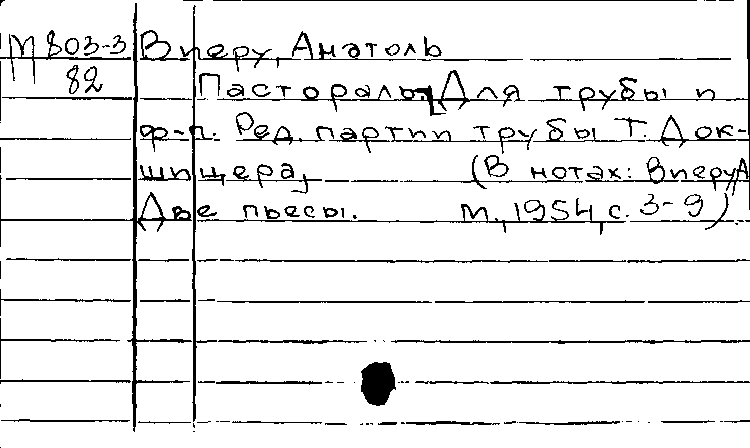 М 803-3 Вперу, Анатоль
82 Пастораль. Для трубы и
ф-п. Ред. партии трубы Т. Док-
шицера, (В нотах: Вперу А
Две пьесы. М., 1954, с. 3-9)